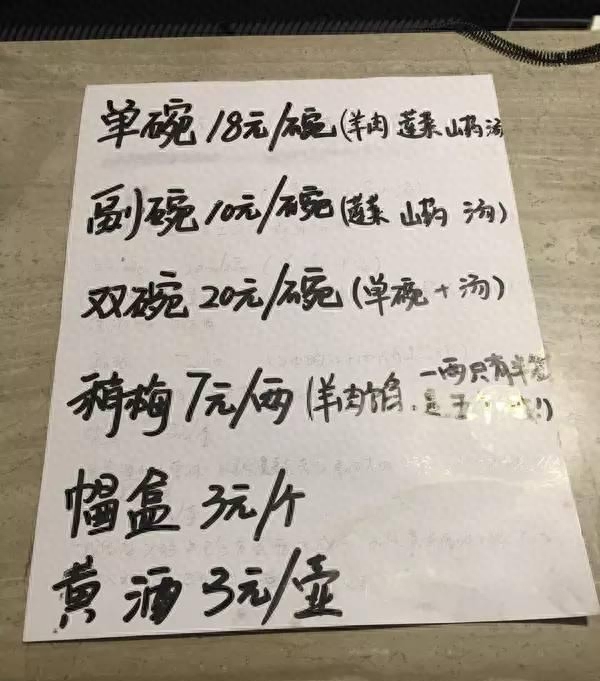 单碗 18元/碗(羊肉 莲菜 山药 汤
副碗 10元/碗(莲菜 山药 汤)
双碗 20元/碗(单碗+汤)
稍梅 7元/两(羊肉馅.一两只有半笼
是五个
帽盒 3元/个
黄酒 3元/壶